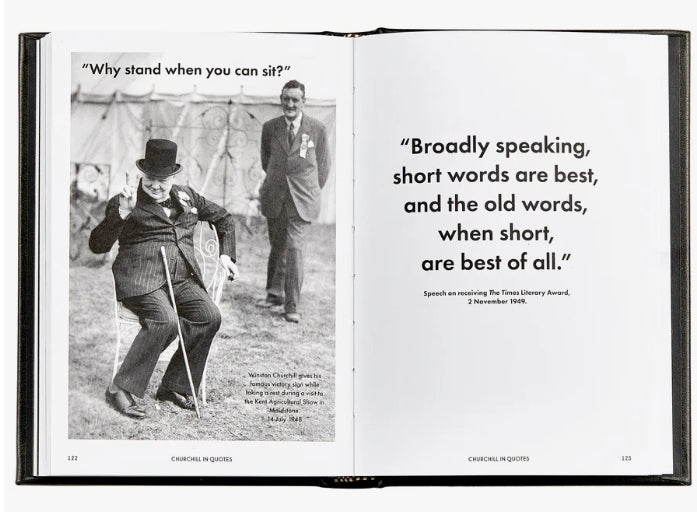 "Why stand when you can sit?"
Winston Churchill gives his
famous victory sign while
taking a rest during a visit to
the Kent Agricultural Show in
Maidstone.
14 July 1948
122
CHURCHILL IN QUOTES
"Broadly speaking,
short words are best,
and the old words,
when short,
are best of all."
Speech on receiving The Times Literary Award,
2 November 1949.
CHURCHILL IN QUOTES
123